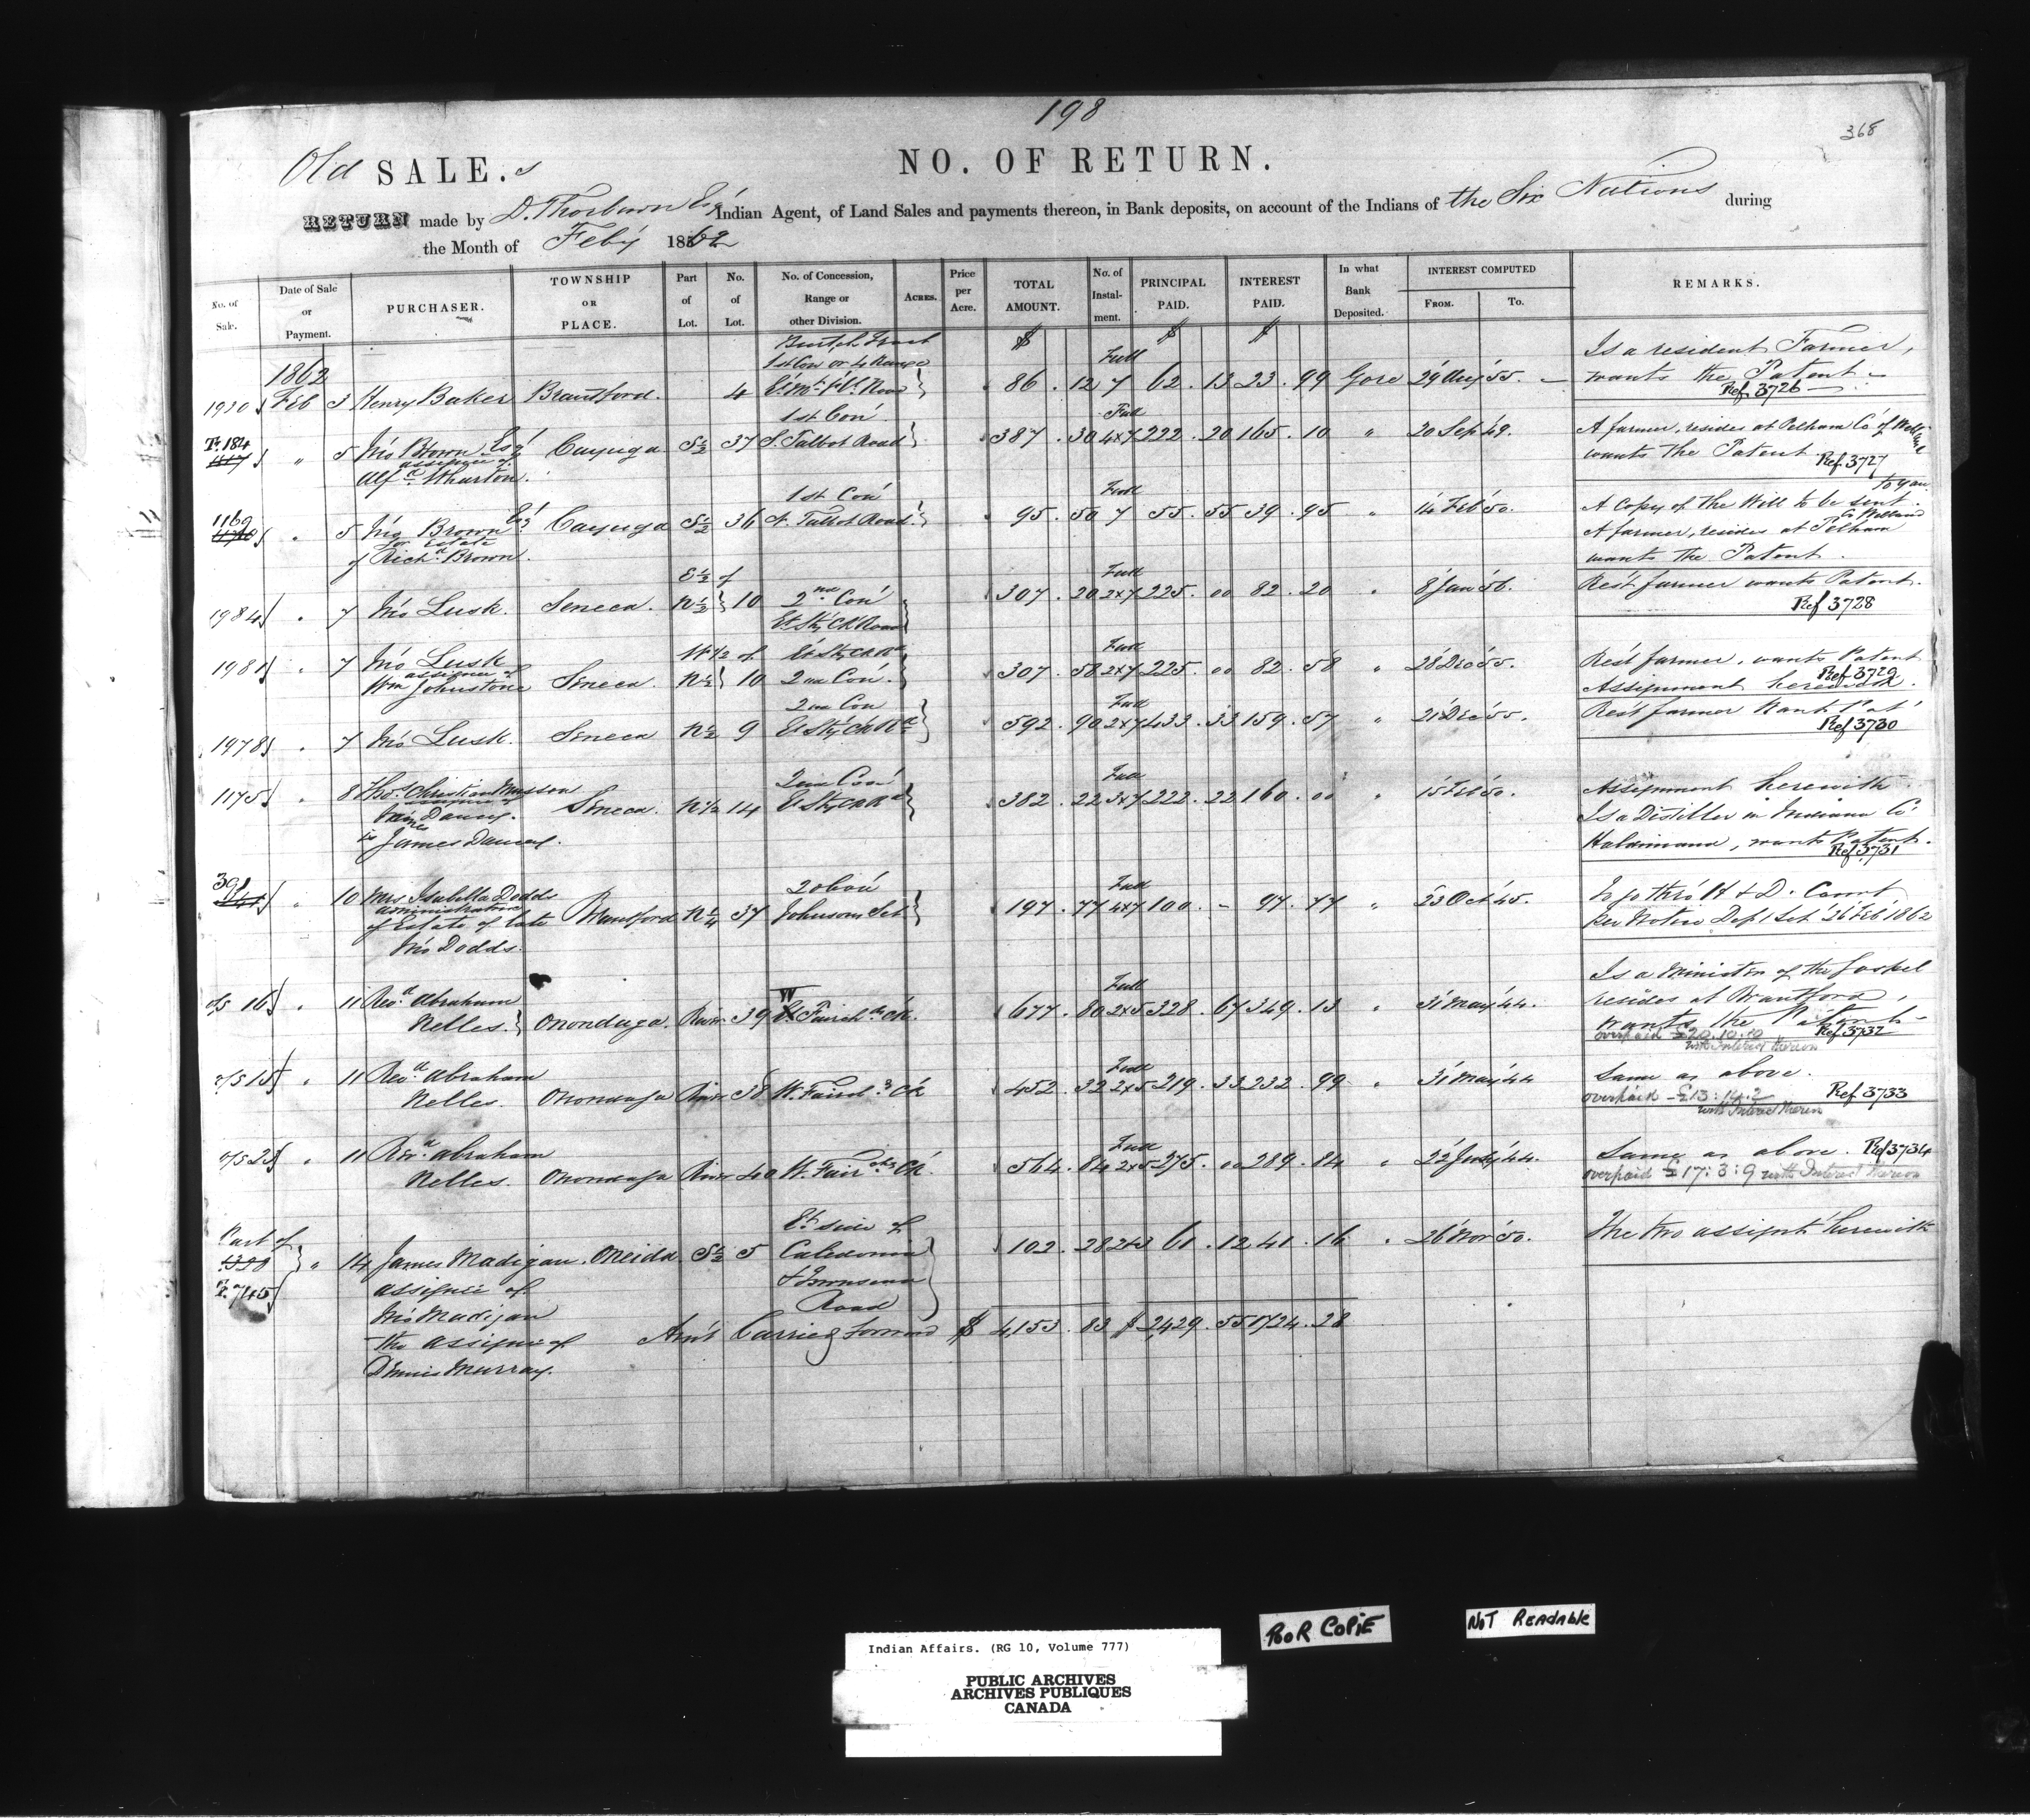 198
368
Old SALE.s
NO. OF RETURN.
RETURN made by D. Thorburn Esqr Indian Agent, of Land Sales and payments thereon, in Bank deposits, on account of the Indians of the Six Nations during
the Month of Feby 1862
No. of Sale. Date of Sale or Payment. PURCHASER. TOWNSHIP OR PLACE. Part of Lot. No. of Lot. No. of Concession, Range or other Division. Acres. Price per Acre. TOTAL AMOUNT. No. of Instal-ment. PRINCIPAL PAID. INTEREST PAID. In what Bank Deposited. INTEREST COMPUTED From. To. REMARKS.
$ $ $
1862
Burtch Tract
1st Con or 4 Range
Full
Is a resident Farmer,
1930 Feb 3 Henry Baker Brantford. 4 86 . 12 7 62 . 13 23 . 99 Gore 29 Aug 55. wants the Patent
Ref. 3726
1st Con
Full
Tr. 184 " 5 Jno Brown Esqr Cayuga S½ 37 S. Talbot Road 387 . 30 4x7 222 . 20 165 . 10 " 20 Sep 49. A farmer, resides at Pelham Co of Welland
assignee of
wants the Patent Ref. 3727
Alfd Wharton.
to you
1st Con
Full
A Copy of the Will to be sent
1169 " 5 Jno Brown Esqr Cayuga S½ 36 N. Talbot Road 95 . 50 7 55 . 55 39 . 95 " 14 Feb 50.
for Estate
A farmer, resides at Pelham Co Welland
of Richd Brown.
wants the Patent.
E½ of
Full
1984 " 7 Jno Lusk. Seneca. N½ 10 2nd Con 307 . 20 2x7 225 . 00 82 . 20 " 8 Jan 56. Rest farmer wants Patent.
Et Sty Ck Road
Ref 3728
W½ of Et Sty Ck Rd
Full
1981 " 7 Jno Lusk Seneca. N½ 10 2nd Con. 307 . 58 2x7 225 . 00 82 . 58 " 28 Dec 55. Rest farmer, wants Patent
assignee of
Ref 3729
Wm Johnstone
Assignment herewith.
2nd Con
Full
1978 " 7 Jno Lusk. Seneca N½ 9 Et Sty Ck Rd 592 . 90 2x7 433 . 33 159 . 57 " 21 Dec 55. Rest farmer Wants Pat
Ref 3730
2nd Con
Full
1175 " 8 Thos Christian Musson Seneca. N½ 14 Et Sty Ck Rd 382 . 22 3x7 222 . 22 160 . 00 " 15 Feb 50. Assignment herewith
assignee of
Is a Distiller in Indiana Co
James
Haldimand, wants Patent.
Ref 3731
2nd Con
Full
391 " 10 Mrs Isabella Dodds Brantford N¼ 37 Johnson Set 197 . 77 4x7 100 . – 97 . 77 " 23 Oct 45. To go thro H & D. Court
administratrix
per Notice Dept Let 26 Feb 1862
of Estate of late
Jno Dodds.
Is a Minister of the Gospel
W
Full
o/s 16 " 11 Revd Abraham Onondaga. River 39 Fairch ds Ck. 677 . 80 2x5 328 . 67 349 . 13 " 31 May 44. resides at Brantford,
Nelles.
wants the Patent
overpaid £20.10.10 Ref. 3732
with Interest thereon
Full
o/s 15 " 11 Revd Abraham Onondaga River 38 W. Faird s Ck 452 . 32 2x5 219 . 33 232 . 99 " 31 May 44 Same as above.
Nelles.
overpaid £13:14.2 Ref 3733
with Interest thereon
Full
o/s 23 " 11 Revd Abraham Onondaga River 40 W. Fairchs Ck. 564 . 84 2x5 275 . 00 289 . 84 " 22 July 44. Same as above. Ref 3734
Nelles.
overpaid £17:3:9 with Interest thereon
Part of
Et side of
" 14 James Madigan. Oneida. S½ 5 Caledonia 102 . 28 2x3 61 . 12 41 . 16 " 26 Nov 50. The two assignts herewith
Tr. 745 assignee of & Townsend
Jno Madigan Road
the assignee of Amt Carried forward $ 4,153 . 83 $ 2429 . 55 1724 . 28
Dennis Murray.
Indian Affairs. (RG 10, Volume 777)
PUBLIC ARCHIVES
ARCHIVES PUBLIQUES
CANADA
POOR COPIE
NOT READABLE